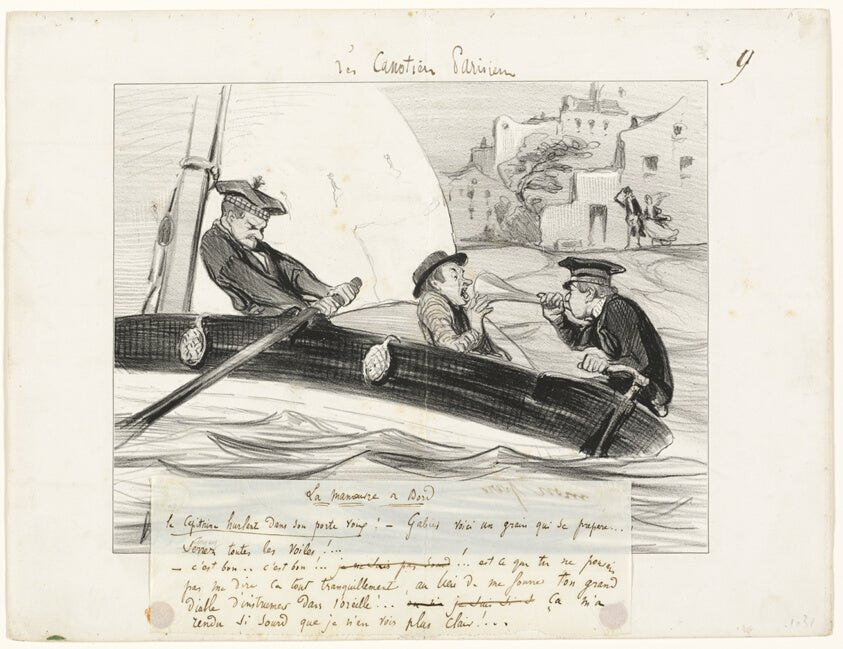 Les Canotiers Parisiens
9
La manœuvre a Bord
le Capitaine hurlant dans son porte voix : - Gabier voici un grain qui se prépare...
Serrez toutes les voiles !...
- c'est bon .. c'est bon !... je ne suis pas sourd !... est ce que tu ne pouvais
pas me dire ça tout tranquillement, au lieu de me fourrer ton grand
Diable d'instrument dans l'oreille !... je suis si s Ça m'a
rendu si sourd que je n'en vois plus clair !...